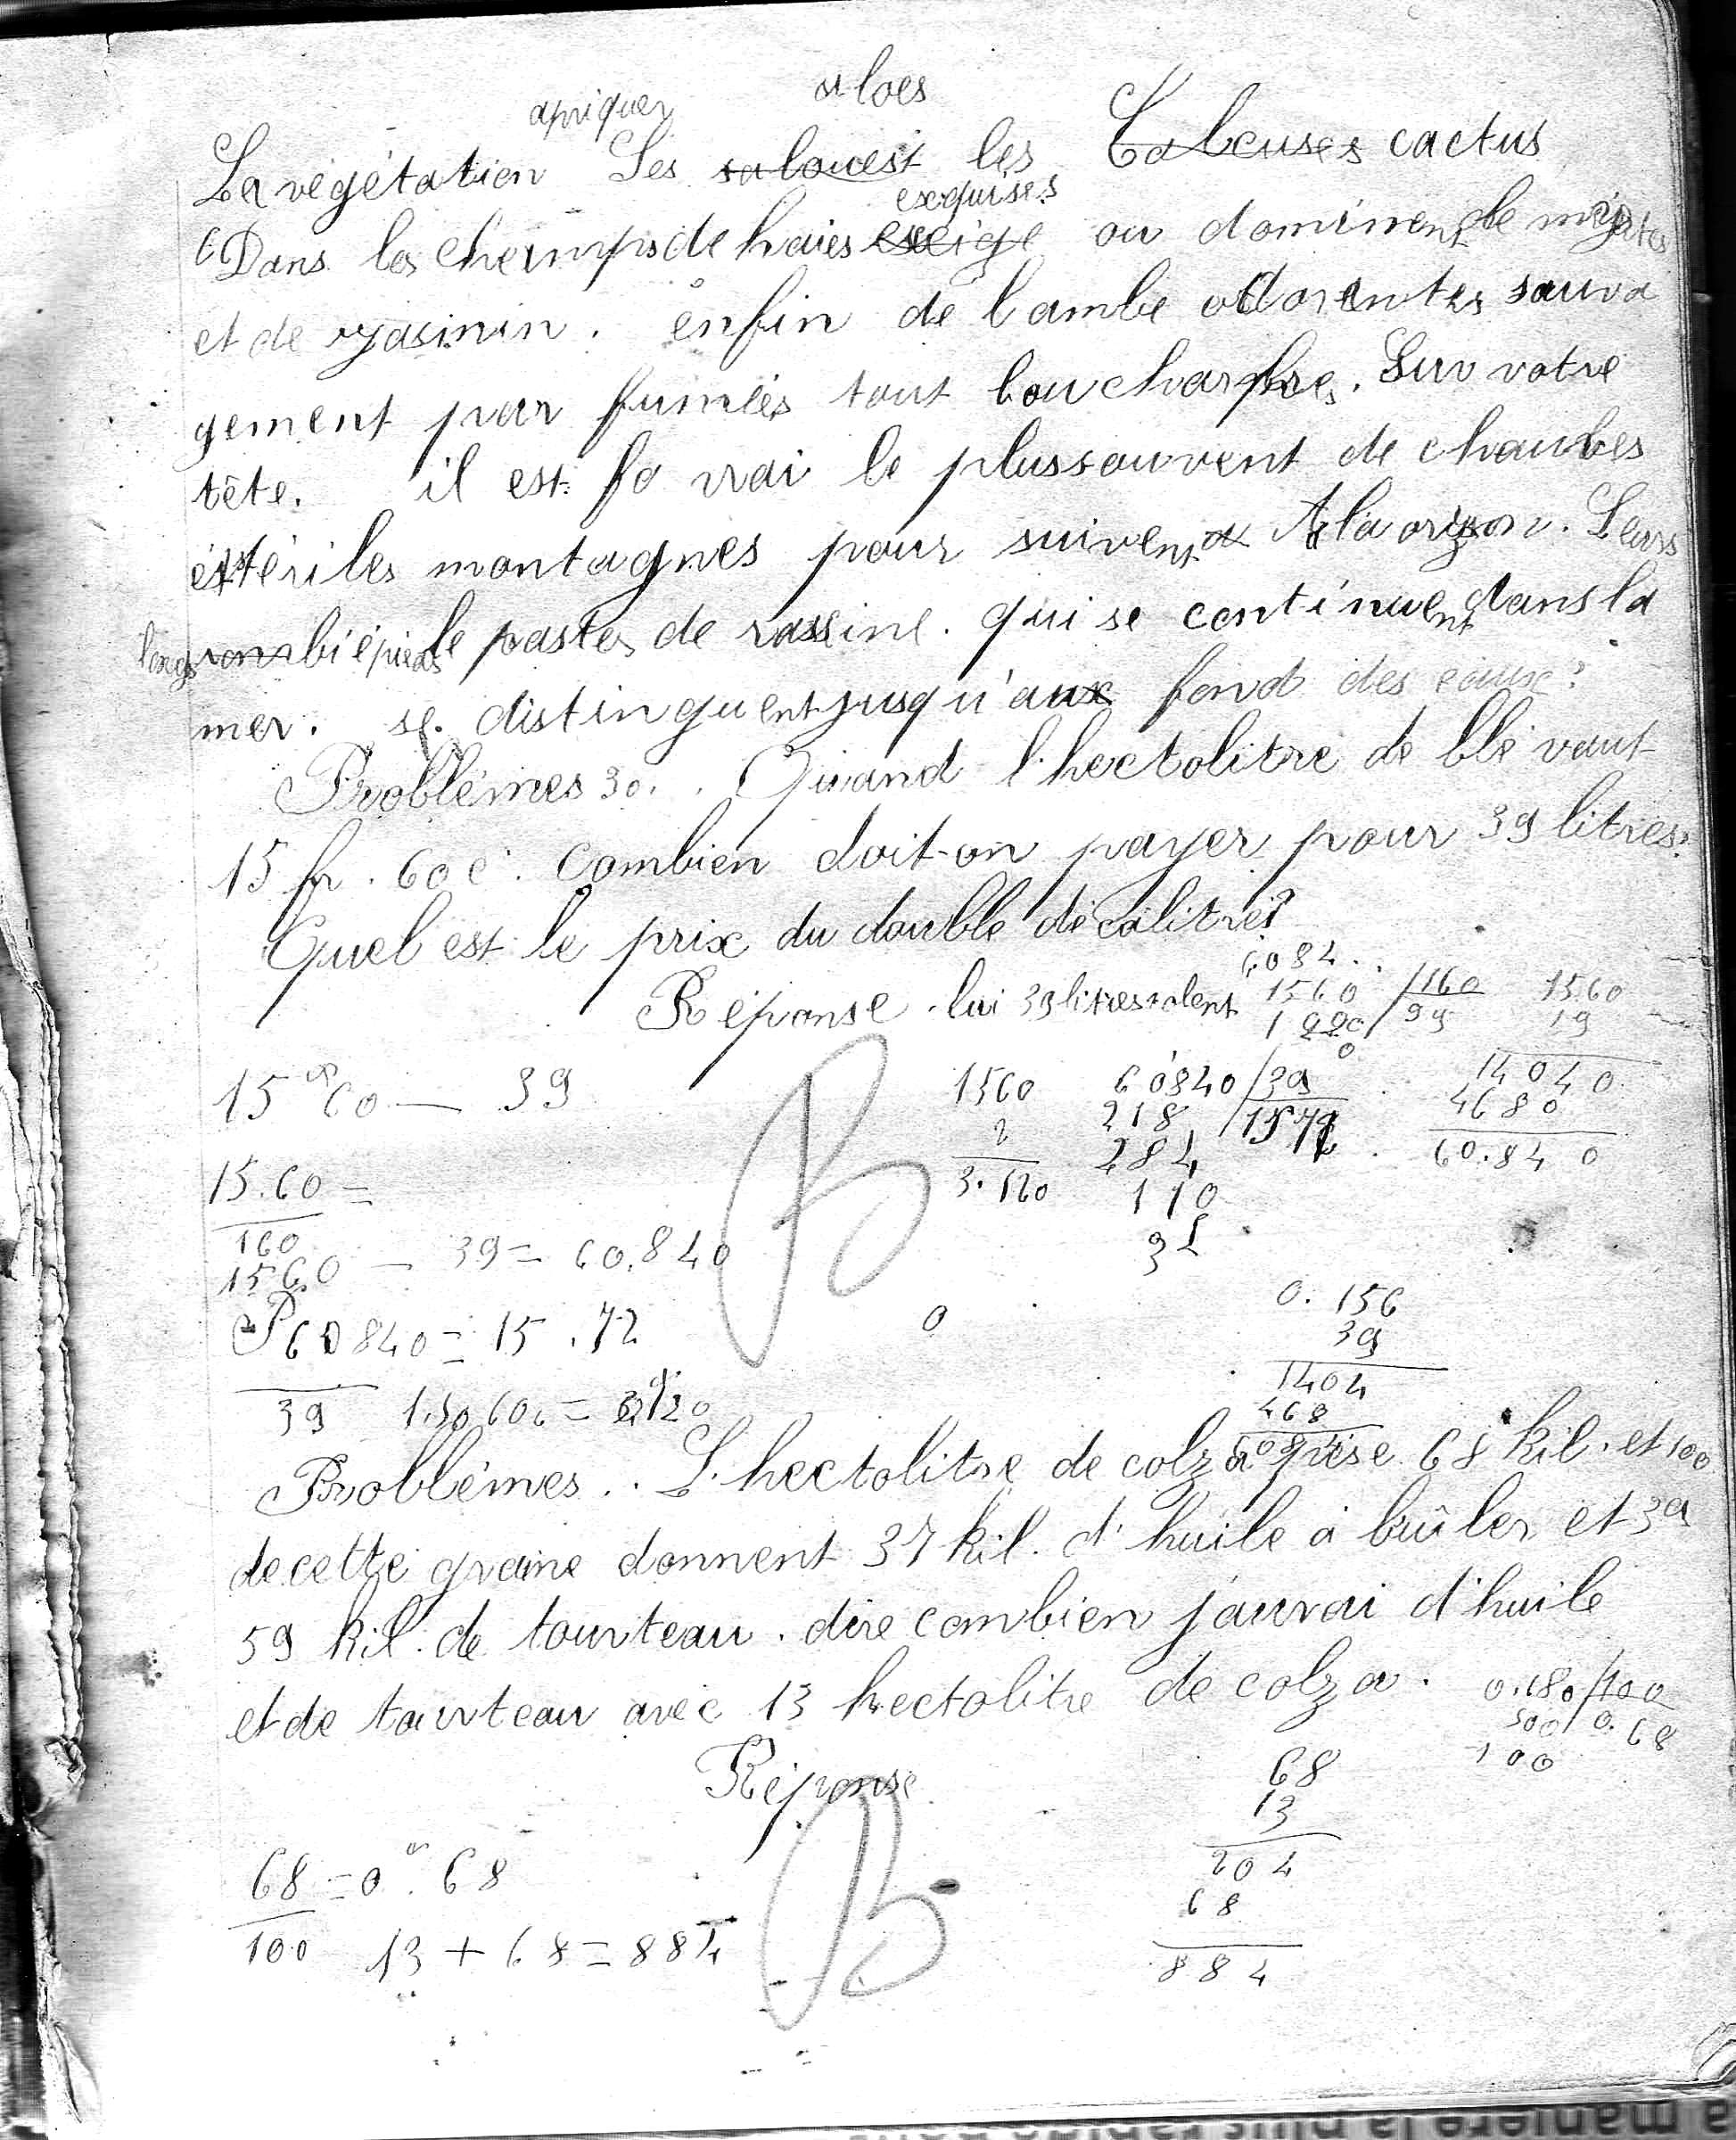 apriquer aloes
La végétation Les salouest les Caleuses cactus
exquises
Dans les champs de haies exige ou dominent de myrtes
et de jasmin. enfin de l'ambe odorantes sauva
gement par fumées tout lou charphre. Sur votre
tête. il est fo vrai le plus souvent de chaubes
éstériles montagnes pour suivent A la orizon. Leurs
longs bié pieds le pastes de rassine. qui se continuent dans la
mer. se distinguent jusqu'aux fond des eaux.
Problèmes 30. Quand l'hectolitre de blé vaut
15 fr. 60 c. combien doit-on payer pour 39 litres.
Quel est le prix du double décalitre?
6.084
Réponse. lui 39 litres valent 1560 /160 1560
99 19
15 60 — 39
1560 60840/39 14040
2 218 /1572 4680
3.120 284 60.840
110
32
15.60 =
160
1560 — 39 = 60.840
60840 = 15.72
39
0
0.156
39
1404
468
6084
1.50 60c = 3120
Problèmes.. L'hectolitre de colza pèse 68 kil. et 100
de cette graine donnent 37 kil. d'huile à bûler et 39
59 kil. de tourteau. dire combien j'aurai d'huile
et de tourteau avec 13 hectolitre de colza.
0.680/100
500 / 0.68
100
Réponse
68
13
204
68
884
68 = 0.68
100 13 + 68 = 884
B
B
a manière la plus rapide